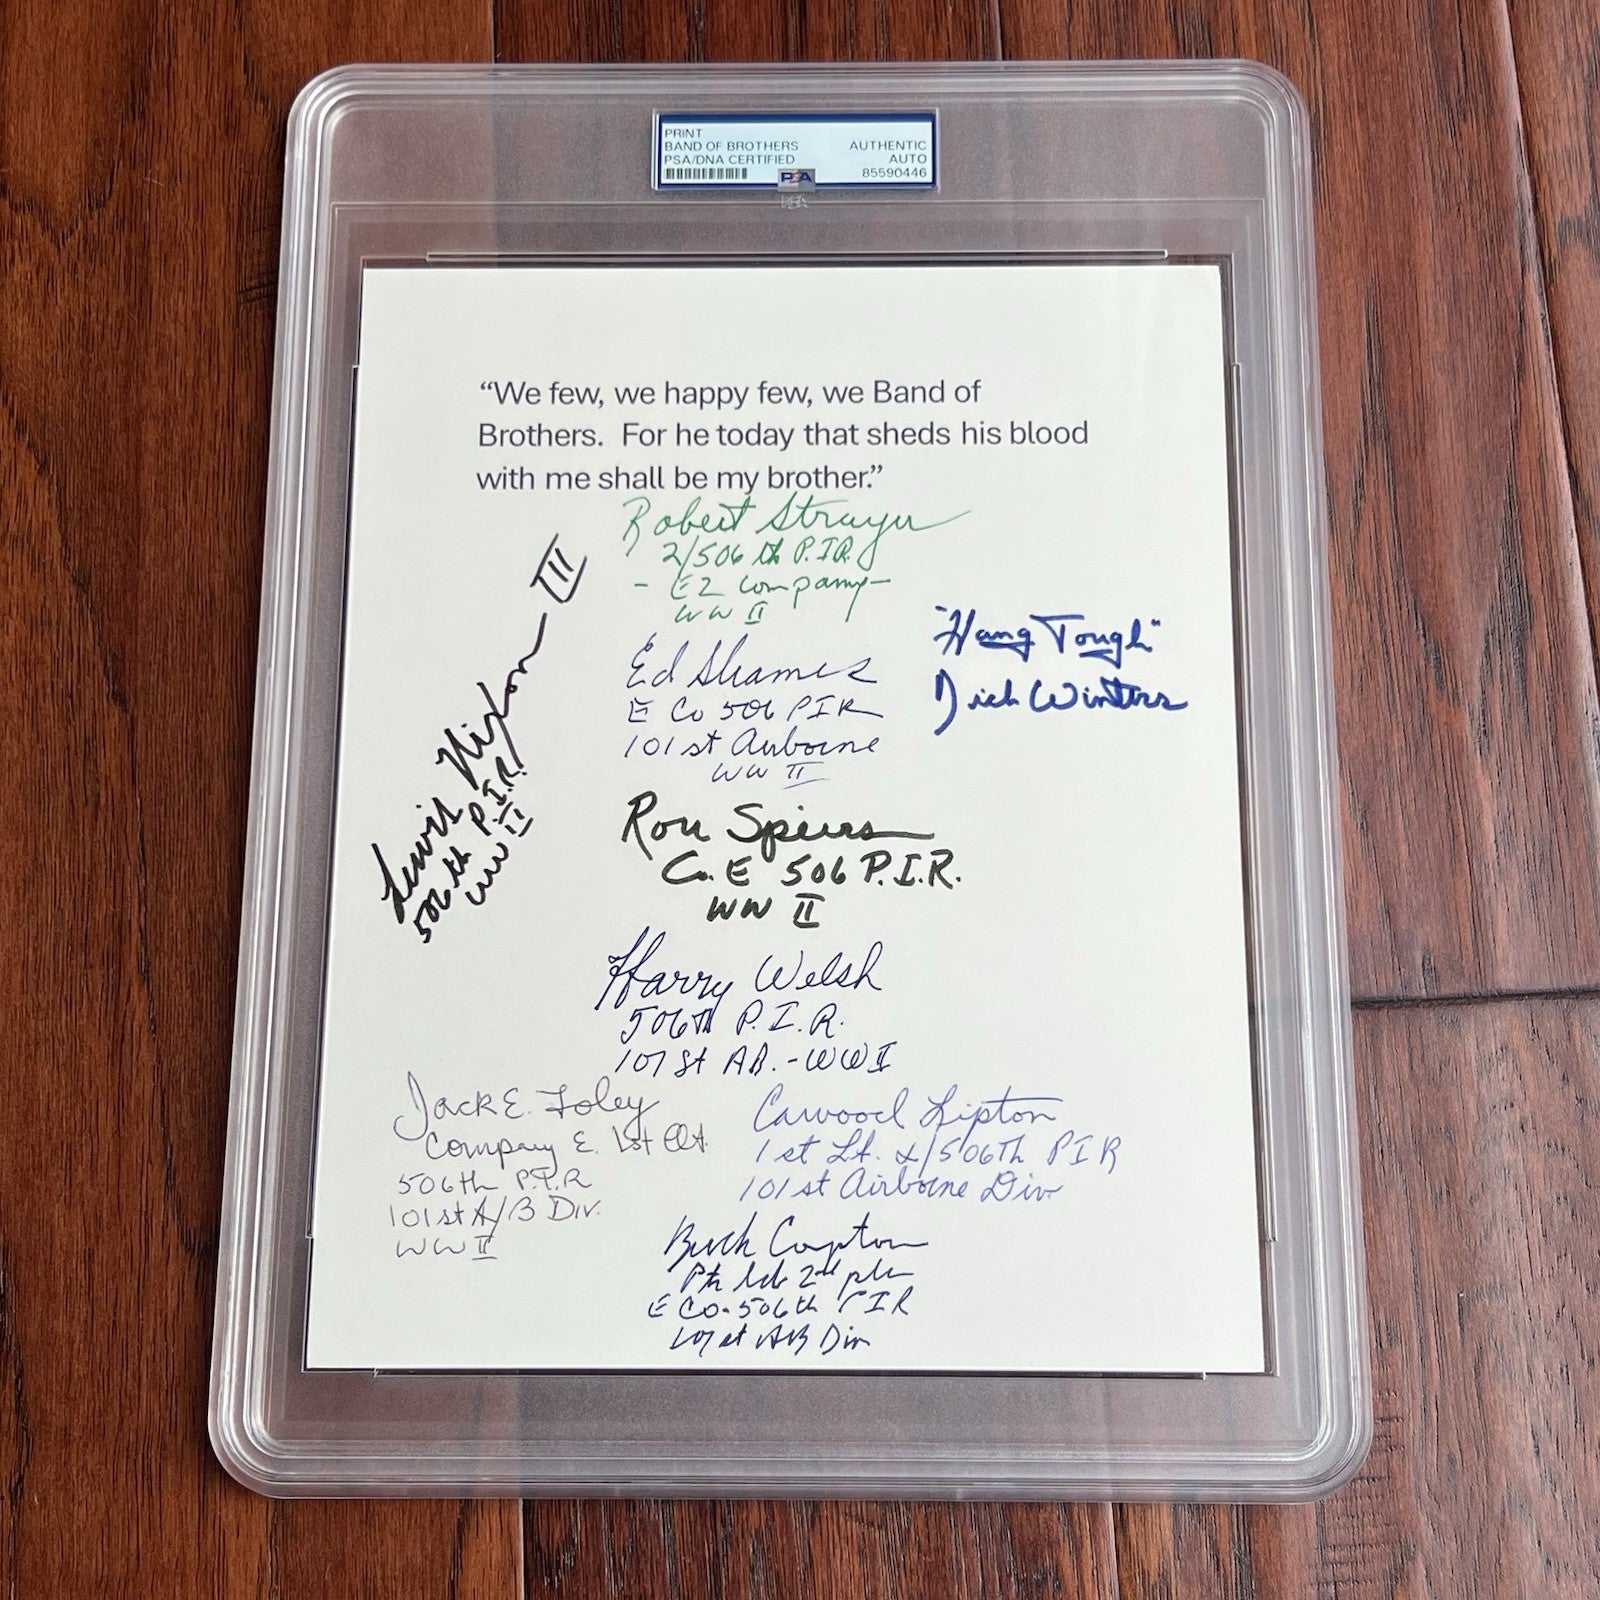 PRINT
BAND OF BROTHERS
PSA/DNA CERTIFIED
AUTHENTIC
AUTO
85590446
PSA
"We few, we happy few, we Band of
Brothers. For he today that sheds his blood
with me shall be my brother."
Robert Strayer
2/506 th P.I.R.
- E2 Company -
WW II
"Hang Tough"
Dick Winters
Ed Shames
E Co 506 PIR
101st Airborne
WW II
Lewis Nixon III
506 th P.I.R.
WW II
Ron Speirs
Co. E 506 P.I.R.
WW II
Harry Welsh
506TH P.I.R.
101 st AB. - WWII
Jack E. Foley
Company E. 1st
506th P.I.R
101st A/B Div.
WW II
Carwood Lipton
1st Lt. 2/506TH PIR
101st Airborne Div
Buck Compton
2nd
E Co. 506th PIR
101st AB Div